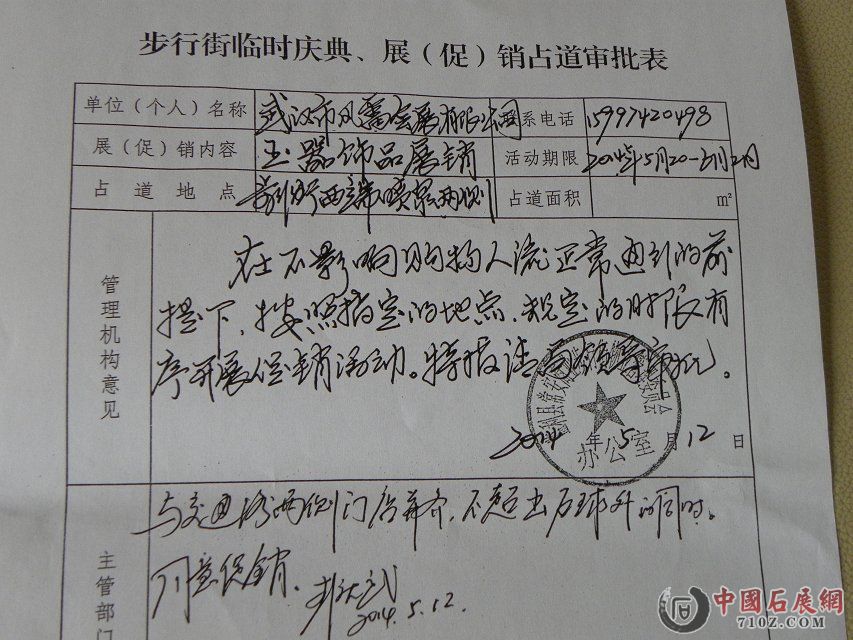 步行街临时庆典、展（促）销占道审批表
单位（个人）名称 武汉市风 会展有限公司 系电话 15997420498
展（促）销内容 玉器饰品展销 活动期限 2014年5月20-6月2日
占道地点 西 喷泉两侧 占道面积 m²
管理机构意见
在不影响购物人流正常通行的前
提下，按照指定的地点、规定的时限有
序开展促销活动。特报请 领导审批。
办公室
2014年5月12日
主管部门
与交通路两侧门店并齐，不超出石球外的同时。
同意促销。
2014.5.12.
中國石展網
710Z.COM